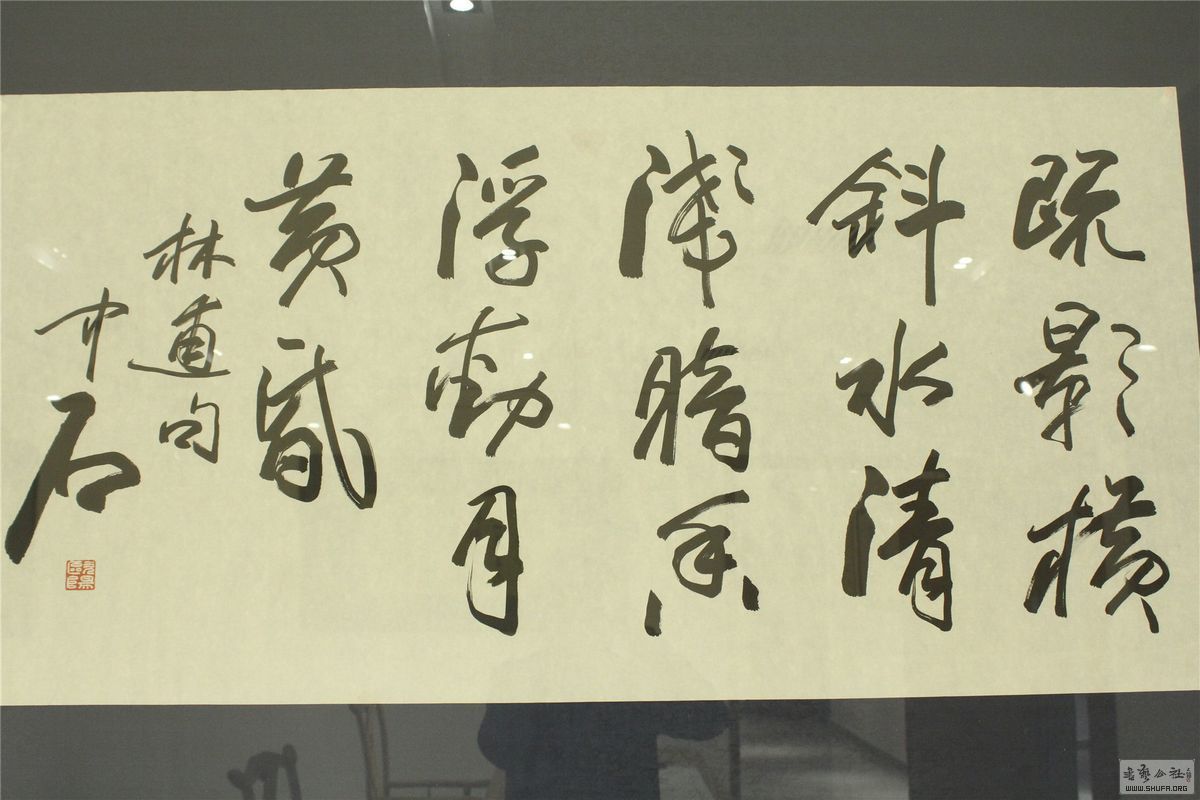 疏影横
斜水清
浅暗香
浮动月
黄昏
林逋句
中石
欧阳
書艺公社
WWW.SHUFA.ORG